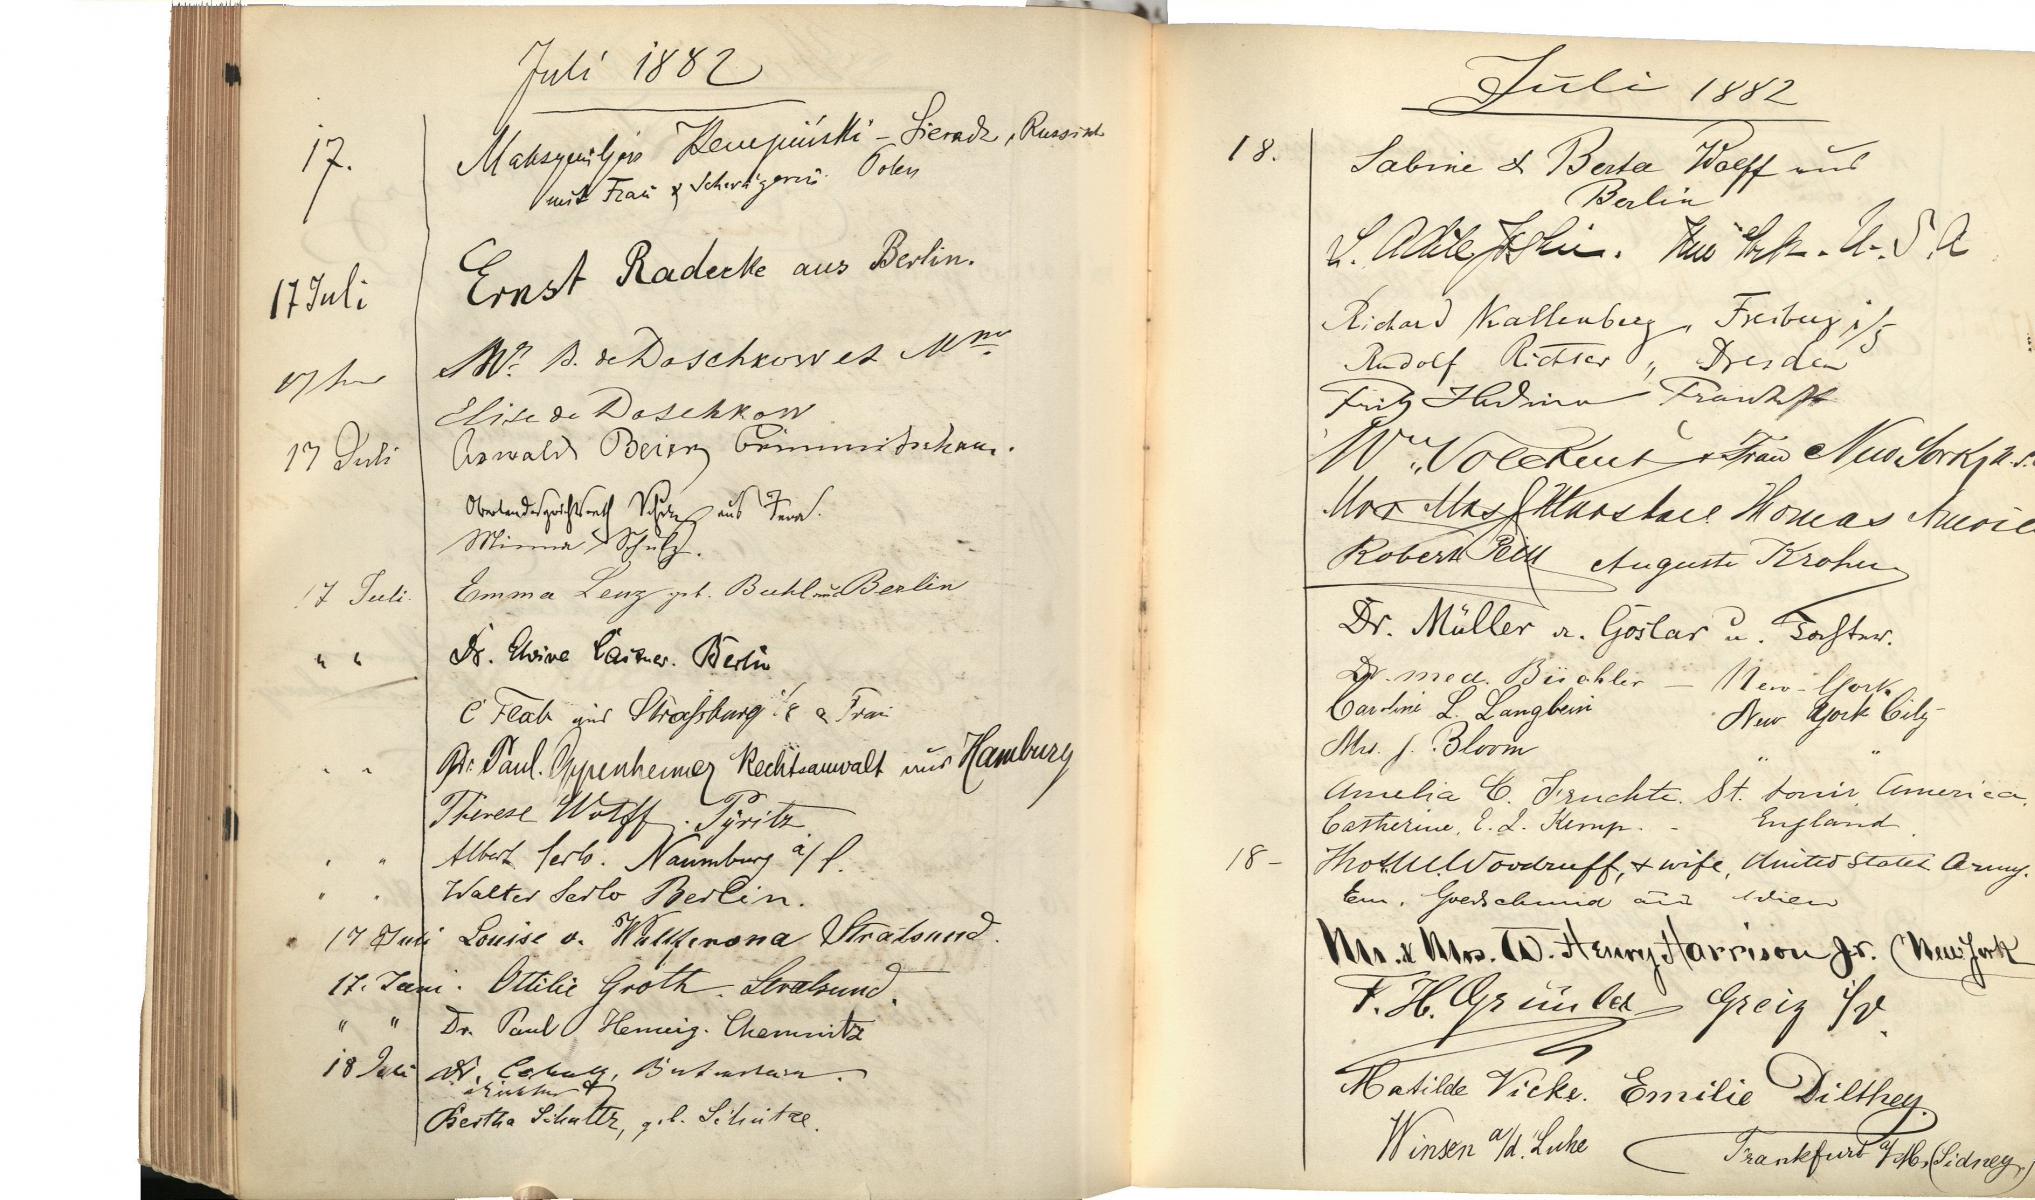 Juli 1882
17.
Maksymiljan Kempiński - Sieradz, Russisch
mit Frau & Schwägerin Polen
17 Juli Ernst Radecke aus Berlin.
Mr. B. de Daschkow et Mme
Elise de Daschkow
17 Juli Oswald Beier, Crimmitschau.
Oberlandesgerichtsrath Schulz aus Jena.
Minna Schulz.
17 Juli. Emma Lenz geb. Buhl aus Berlin
" " Dr. Berlin
C Flab aus Strassburg i/E & Frau
" " Dr. Paul. Oppenheimer Rechtsanwalt aus Hamburg
Therese Wolff. Pyritz
" " Albert Serlo. Naumburg a/S.
" " Walter Serlo Berlin.
17 Juli Louise v. Stralsund.
17. Juni. Ottilie Groth. Stralsund.
" " Dr. Paul Hennig. Chemnitz
18 Juli Dr.
Bertha Schultz, geb. Schütze.
Juli 1882
18. Sabine & Berta Wolff aus
Berlin
New York. U. S. A
Richard Kallenberg, Freiberg i/S
Rudolf Richter, Dresden
Fritz Frankfurt
Wm. Volckent & Frau New York, U. S.
Mr & Mrs J Marshall Thomas Americ
Robert Auguste Krohn
Dr. Müller a. Goslar u. Tochter.
Dr. med. Büchler — New-York.
Caroline L. Langbein New York City
Mrs. J. Bloom " "
Amelia C. Fruchte. St. Louis America.
Catherine. E. L. Kemp. - England.
18 - Thos. M. Woodruff, & wife, United States Army.
Em. Goldschmid aus Wien
Mr. & Mrs. W. Henry Harrison Jr. New York
F. H. Gründler Greiz i/V.
Matilde Vicke. Emilie Dilthey.
Winsen a/d. Luhe Frankfurt a/M, (Sidney)